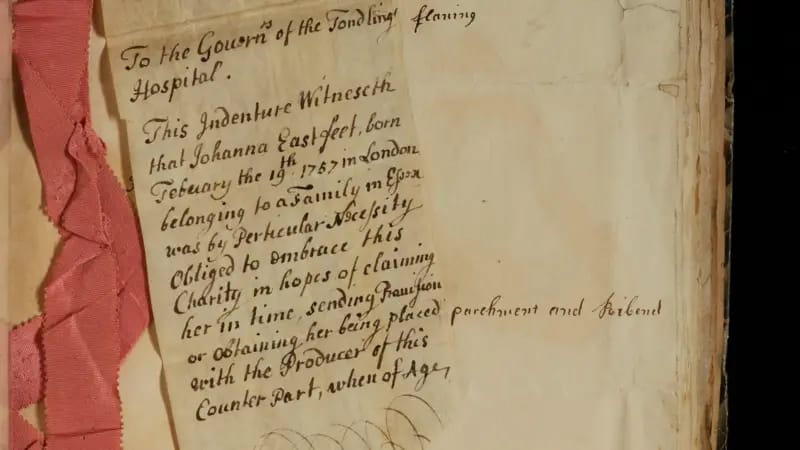 To the Govern.rs of the Fondling
Hospital.
This Indenture Witneseth
that Johanna Eastfeet, born
Febuary the 19th. 1757 in London
belonging to a Family in Essex
was by Perticular Necessity
Obliged to embrace this
Charity in hopes of claiming
her in time, sending Provision
or obtaining her being placed
with the Producer of this
Counter Part, when of Age,
flaning
parchment and Ribend